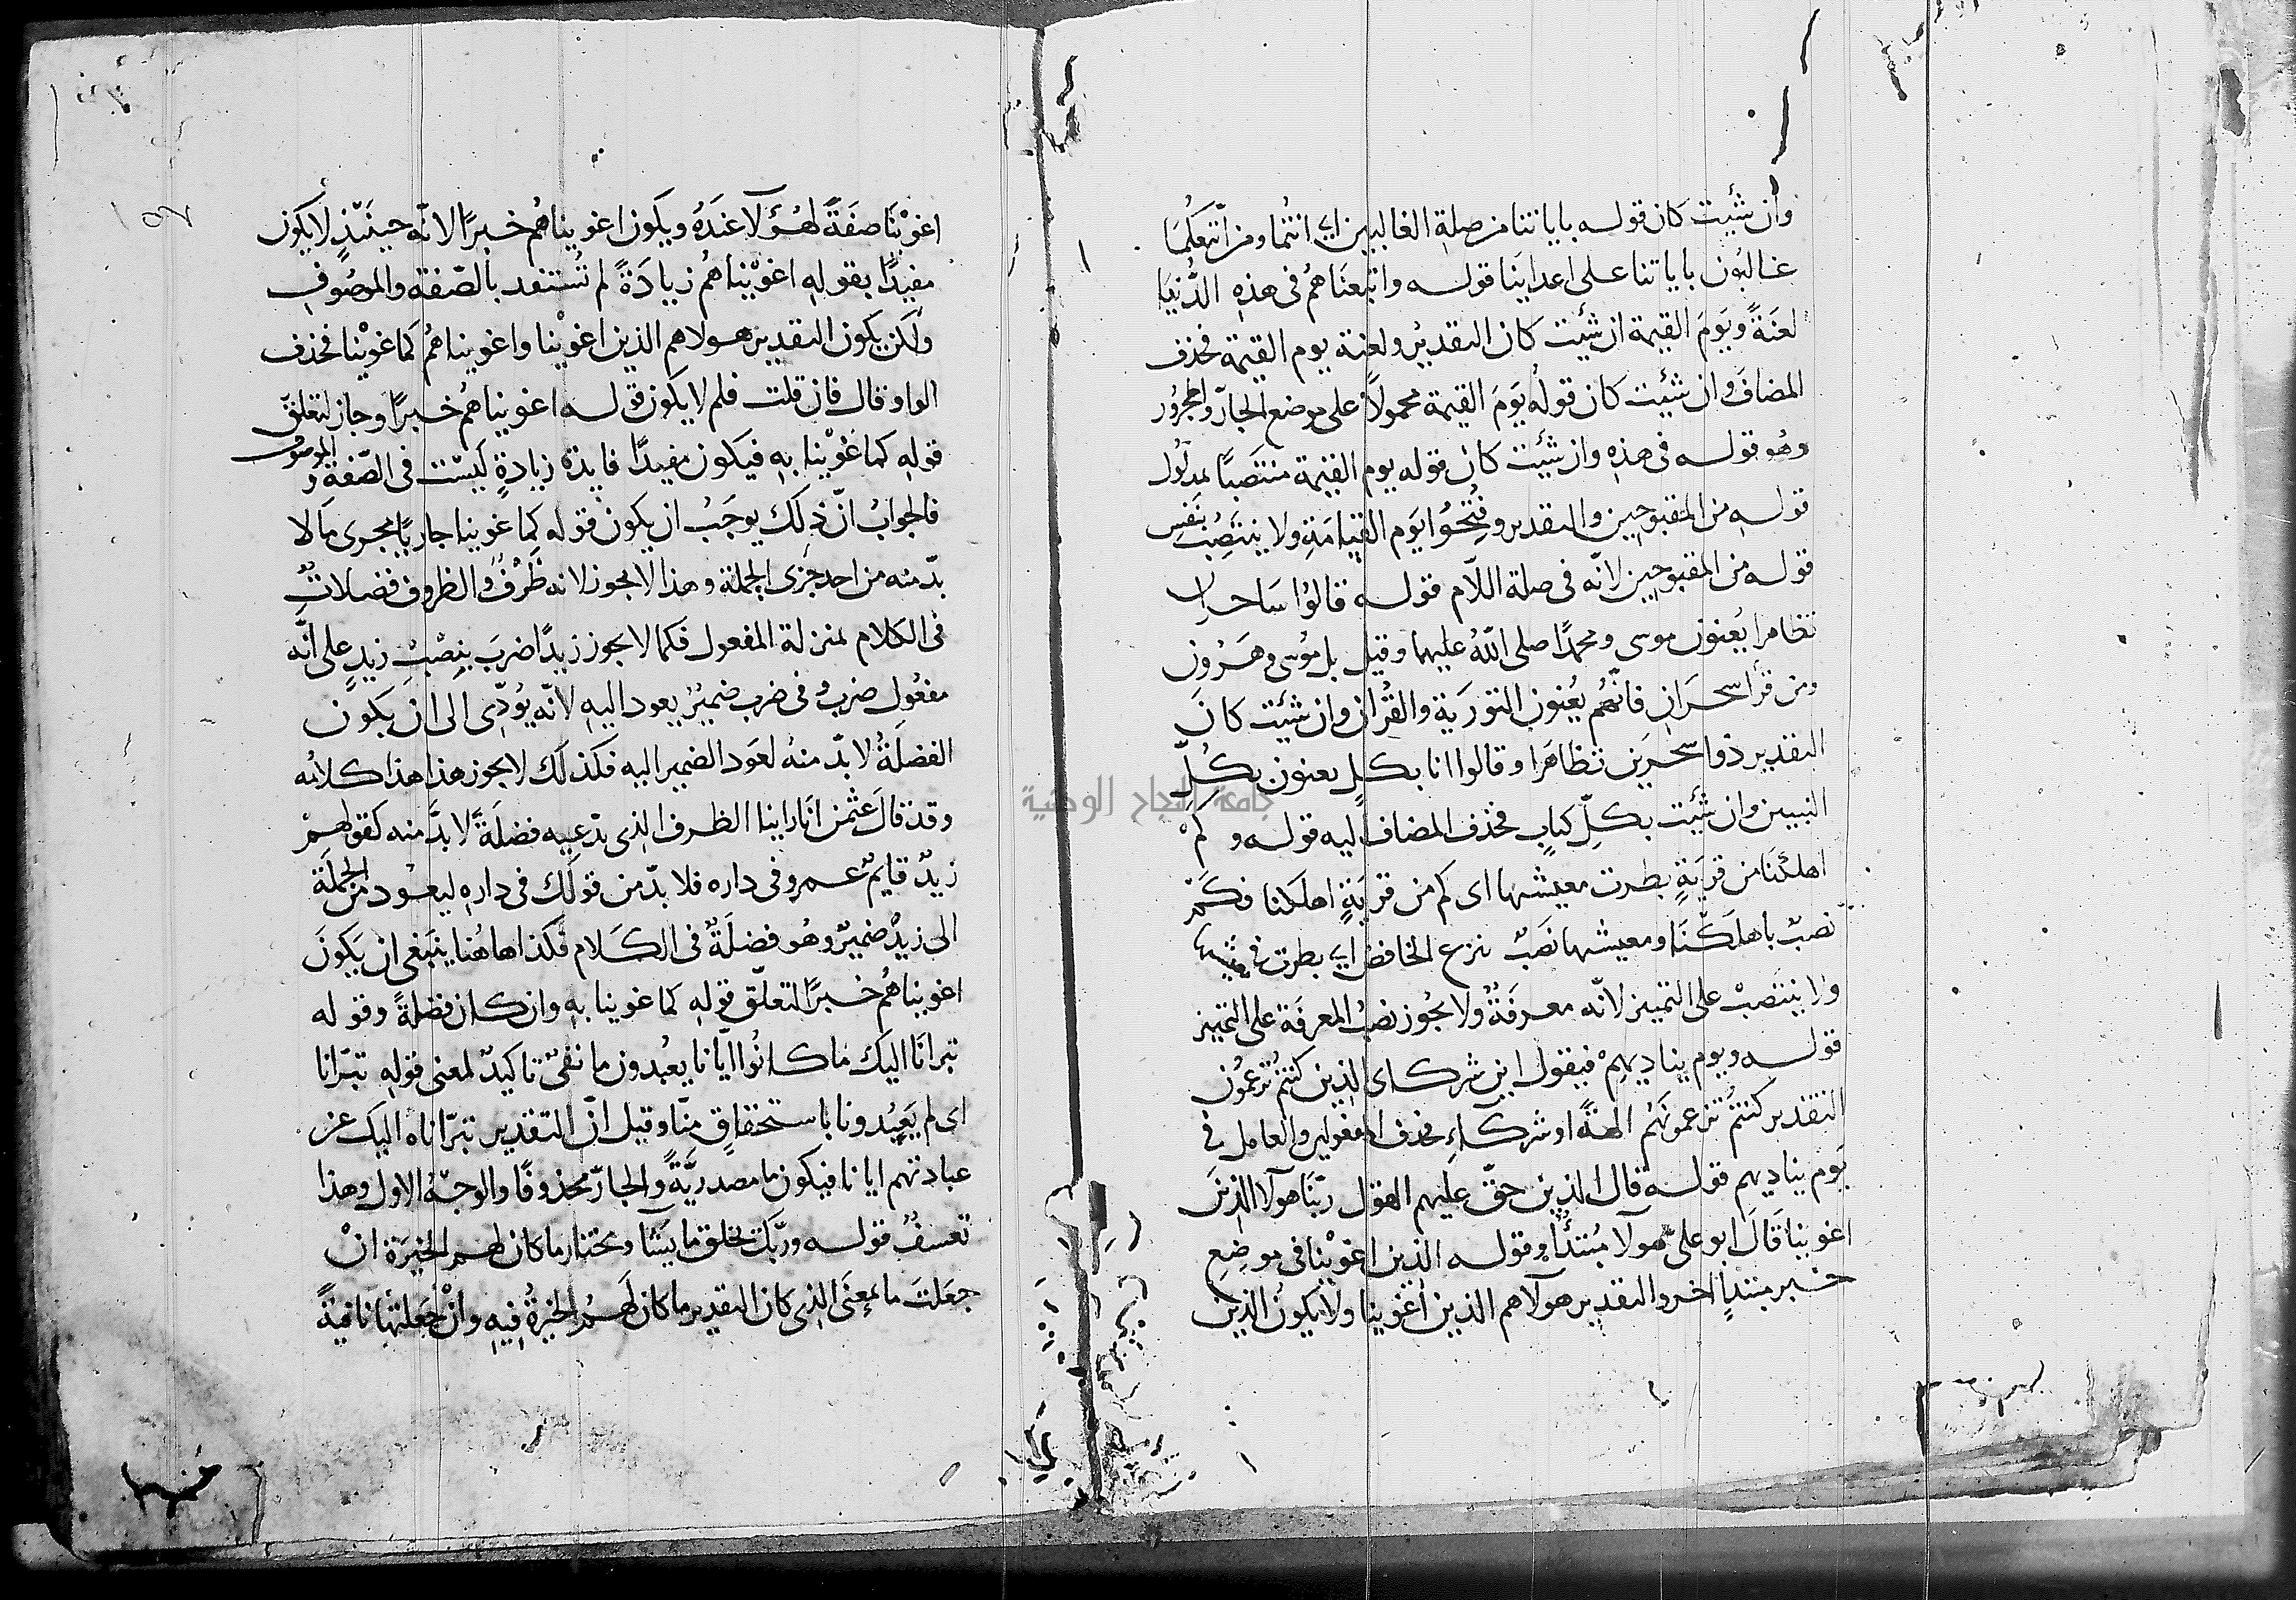 وان شئت كان قوله باياتنا من صلة الغالبين اي انتما ومن اتبعكما
غالبون باياتنا على اعداينا قوله واتبعناهم فى هذه الدنيا
لعنة ويوم القيمة ان شئت كان التقدير ولعنة يوم القيمة فحذف
المضاف وان شئت كان قوله يوم القيمة محمولا على موضع الجار والمجرور
وهو قوله فى هذه وان شئت كان قوله يوم القيمة منتصبا بمدلول
قوله من المقبوحين والتقدير وقبحوا يوم القيامة ولا ينتصب بنفس
قوله من المقبوحين لانه فى صلة اللام قوله قالوا ساحران
تظاهرا يعنون موسى ومحمدا صلى الله عليهما وقيل بل موسى وهرون
ومن قرأ سحران فانهم يعنون التورية والقران وان شئت كان
التقدير ذوا سحرين تظاهرا وقالوا انا بكل يعنون بكل
النبيين وان شئت بكل كتاب فحذف المضاف اليه قوله وكم
اهلكنا من قرية بطرت معيشتها اى كم من قرية اهلكنا فكم
نصب باهلكنا ومعيشتها نصب بنزع الخافض اي بطرت فى معيشتها
ولا ينتصب على التمييز لانه معرفة ولا يجوز نصب المعرفة على التمييز
قوله ويوم يناديهم فيقول اين شركاى الذين كنتم تزعمون
التقدير كنتم تزعمونهم الهة او شركاء فحذف المفعولين والعامل فى
يوم يناديهم قوله قال الذين حق عليهم القول ربنا هولا الذين
اغوينا قال ابو على هولا مبتدأ وقوله الذين اغوينا فى موضع
خبر مبتدإ اخر والتقدير هولا هم الذين اغوينا ولا يكون الذين
اغوينا صفة لهؤلا عنده ويكون اغويناهم خبرا لانه حينئذ لا يكون
مفيدا بقوله اغويناهم زيادة لم تستفد بالصفة والموصوف
ولكن يكون التقدير هولا هم الذين اغوينا واغويناهم كما غوينا فحذف
الواو قال فان قلت فلم لا يكون قوله اغويناهم خبرا وجاز لتعلق
قوله كما غوينا به فيكون مفيدا فايدة زيادة ليست فى الصفة والموصوف
فالجواب ان ذلك يوجب ان يكون قوله كما غوينا جاريا مجرى ما لا
بد منه من احد جزى الجملة وهذا لا يجوز لانه ظرف والظروف فضلات
فى الكلام بمنزلة المفعول فكما لا يجوز زيدا ضرب بنصب زيد على انه
مفعول ضرب وفى ضرب ضمير يعود اليه لانه يؤدى الى ان يكون
الفضلة لا بد منه لعود الضمير اليه فكذلك لا يجوز هذا هذا كلامه
وقد قال عثمن انا راينا الظرف الذى يدعيه فضلة لا بد منه كقولهم
زيد قايم عمرو فى داره فلا بد من قولك فى داره ليعود من الجملة
الى زيد ضمير وهو فضلة فى الكلام فكذا هاهنا ينبغى ان يكون
اغويناهم خبرا لتعلق قوله كما غوينا به وان كان فضلة وقوله
تبرانا اليك ما كانوا ايانا يعبدون ما نفى تاكيد لمعنى قوله تبرانا
اى لم يعبدونا باستحقاق منا وقيل ان التقدير تبراناه اليك عن
عبادتهم ايانا فيكون ما مصدرية والجار محذوفا والوجه الاول وهذا
تعسف قوله وربك يخلق ما يشا ويختار ما كان لهم الخيرة ان
جعلت ما بمعنى الذى كان التقدير ما كان لهم الخيرة فيه وان جعلتها نافية
جامعة النجاح الوطنية